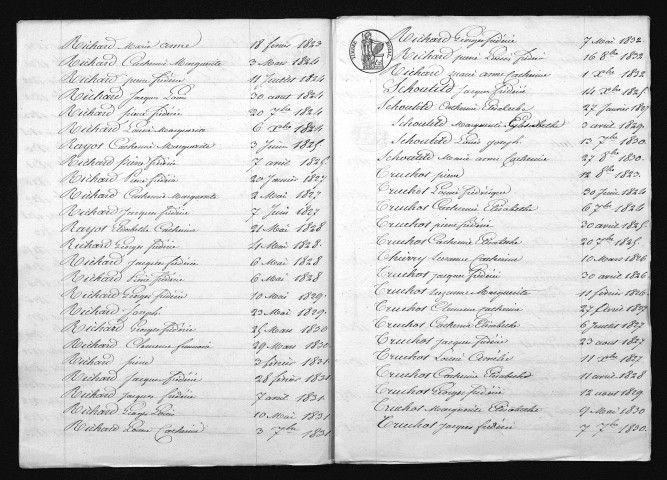 Richard Marie anne 18 fevrier 1823
Richard Catherine Marguerite 3 Mars 1824
Richard pierre frédéric 11 Juillet 1824
Richard Jacques Louis 30 aout 1824
Richard pierre frédéric 20 7bre 1824
Richard Louise Marguerite 6 Xbre 1824
Rayot Catherine Marguerite 3 Juin 1825
Richard pierre frédéric 7 avril 1825
Richard Pierre frédéric 20 Janvier 1827
Richard Catherine Marguerite 2 Mai 1827
Richard Jacques frédéric 7 Juin 1827
Rayot Elisabeth Catherine 21 Mai 1828
Richard George frédéric 21 Mai 1828
Richard Jacques frédéric 6 Mai 1828
Richard Pierre frédéric 6 Mai 1828
Richard George frédéric 10 Mai 1829
Richard Joseph 23 Mai 1829
Richard George frédéric 25 Mars 1830
Richard Clemence 29 Mars 1830
Richard pierre 3 fevrier 1831
Richard Jacques frédéric 28 fevrier 1831
Richard Jacques frédéric 7 avril 1831
Richard George Louis 10 Mai 1831
Richard Louise Catherine 3 7bre 1831
Richard George frédéric 7 Mai 1832
Richard pierre Louis frédéric 16 8bre 1832
Richard marie anne catherine 1 Xbre 1832
Schouleld Jacques frédéric 14 Xbre 1825
Schouleld Catherine Elisabethe 27 Janvier 1827
Schouleld Marguerite Elisabethe 3 avril 1829
Schouleld Louis Joseph 13 7bre 1830
Schouleld Marie anne Catherine 27 8bre 1830
Cruchot pierre 12 8bre 1823
Cruchot Louise frédérique 30 Juin 1824
Cruchot Catherine Elisabethe 6 7bre 1824
Cruchot pierre frédéric 30 avril 1825
Cruchot Catherine Elisabethe 20 7bre 1825
Thierry Susanne Catherine 10 Mars 1826
Cruchot Jacques frédéric 30 avril 1826
Cruchot Susanne Marguerite 11 fevrier 1826
Cruchot Clemence catherine 27 fevrier 1827
Cruchot Catherine Elisabethe 6 Juillet 1827
Cruchot Jacques frédéric 23 aout 1827
Cruchot Louise Amélie 11 Xbre 1827
Cruchot Catherine Elisabethe 11 avril 1828
Cruchot George frédéric 12 aout 1829
Cruchot Marguerite Elisabethe 9 Mai 1830
Cruchot Jacques frédéric 7 7bre 1830